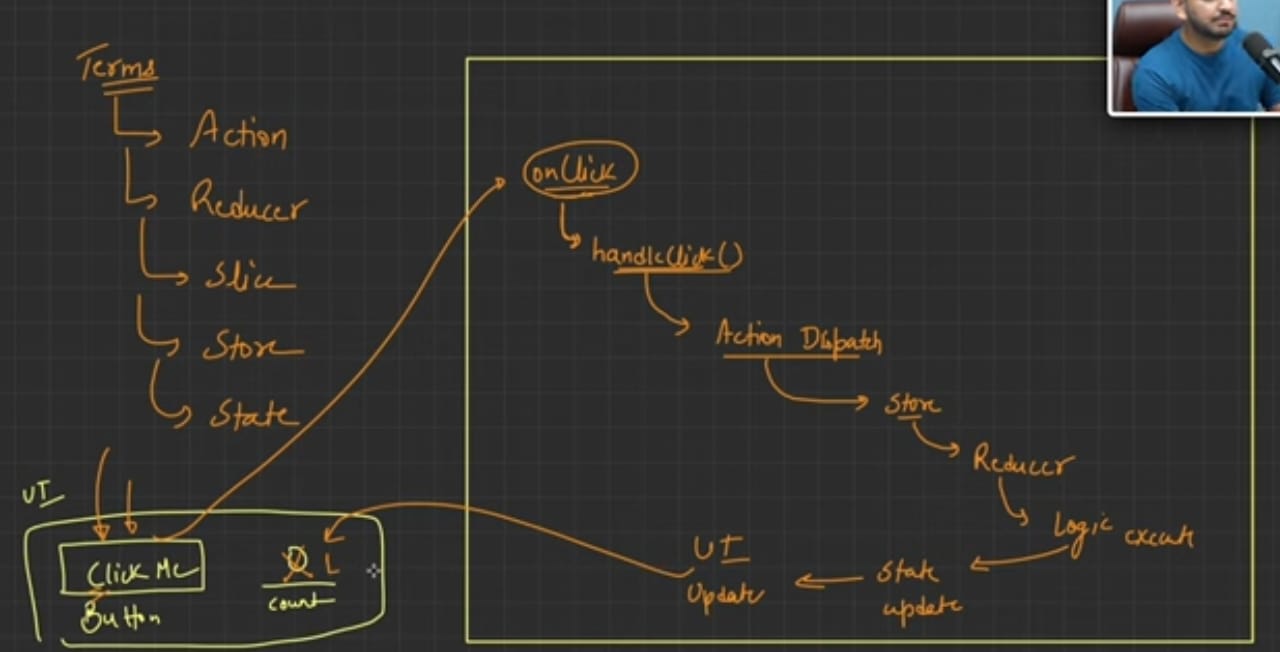 Terms
Action
Reducer
Slice
Store
State
UI
Click Me
Button
0 1
count
onClick
handleClick()
Action Dispatch
Store
Reducer
Logic excute
State
update
UI
Update